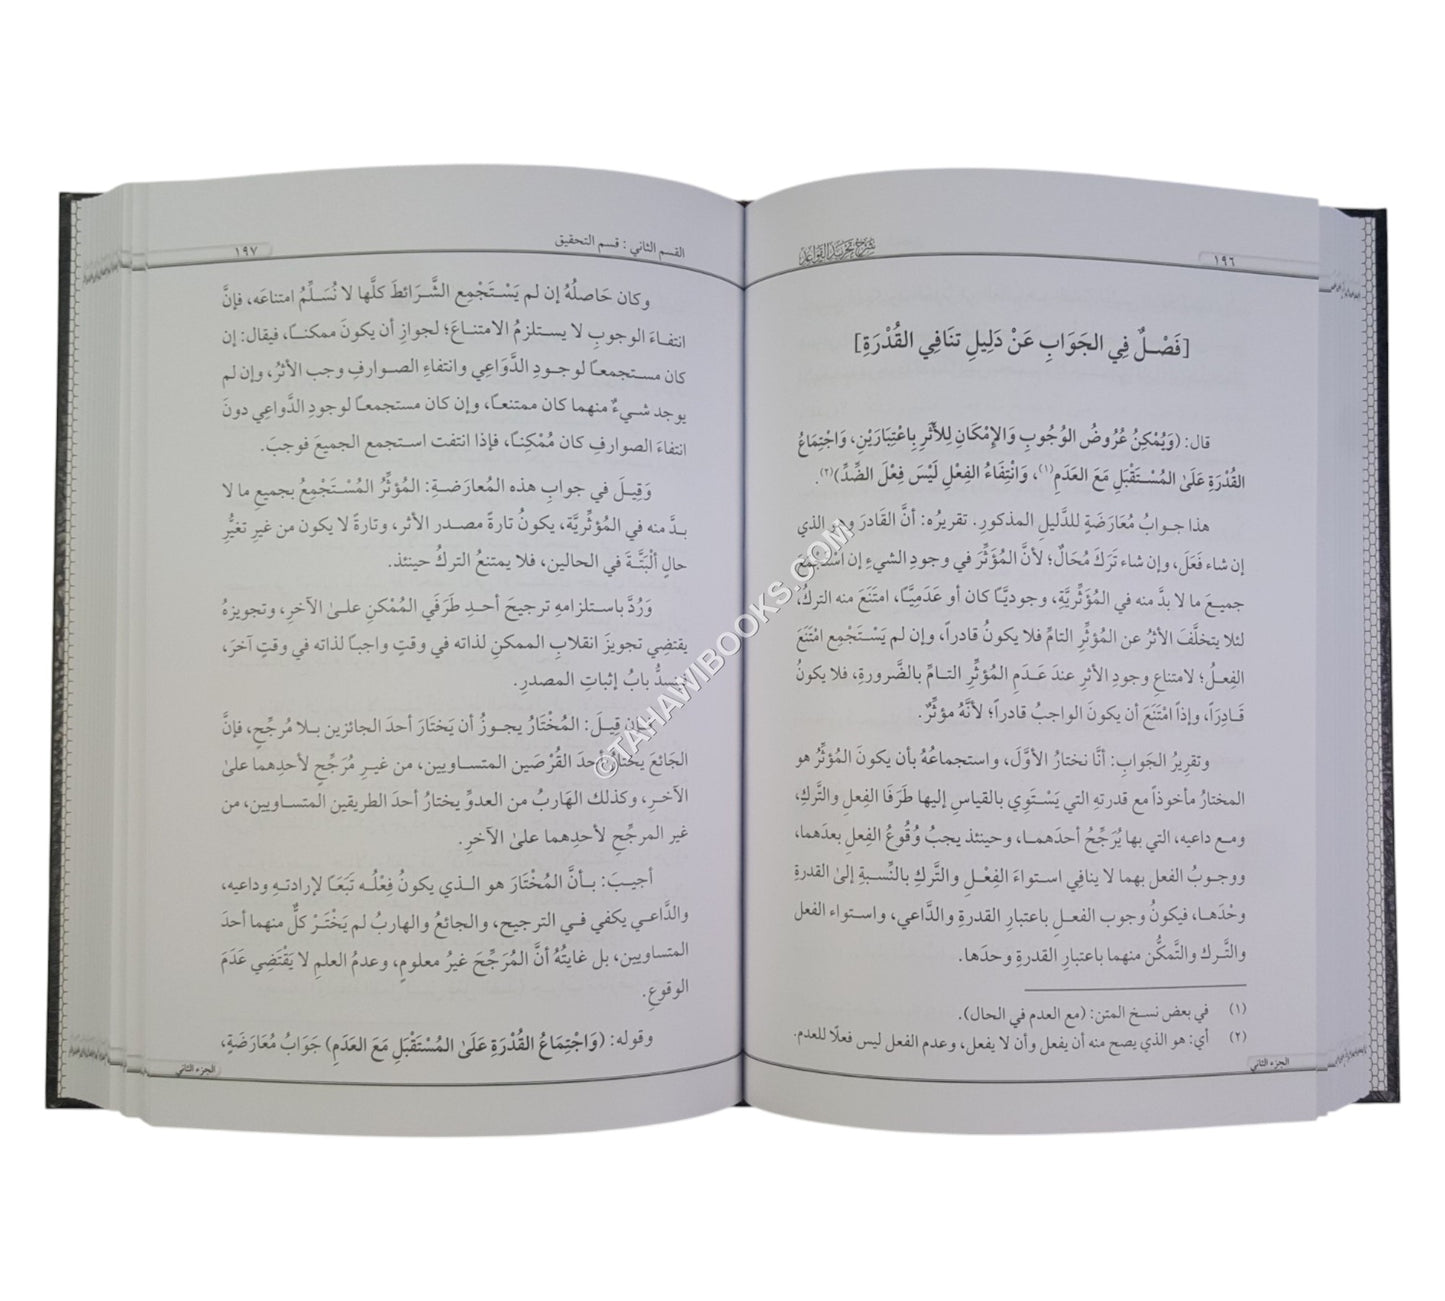 ١٩٦
شرح تجريد القواعد
[فَصْلٌ فِي الجَوَابِ عَنْ دَلِيلِ تنَافِي القُدْرَةِ]
قال: (وَيُمْكِنُ عُرُوضُ الوُجُوبِ وَالإِمْكَانِ لِلأَثَرِ بِاعْتِبَارَيْنِ، وَاجْتِمَاعُ
القُدْرَةِ عَلَى المُسْتَقْبَلِ مَعَ العَدَمِ(١)، وَانْتِفَاءُ الفِعْلِ لَيْسَ فِعْلَ الضِّدِّ)(٢).
هذا جوابُ مُعَارَضَةٍ للدَّليلِ المذكورِ. تقريرُه: أنَّ القَادَرَ وهو الذي
إن شاء فَعَلَ، وإن شاء تَرَكَ مُحَالٌ؛ لأنَّ المُؤَثِّرَ في وجودِ الشيءِ إن استَجْمَعَ
جميعَ ما لا بدَّ منه في المُؤَثِّريَّةِ، وجوديًّا كان أو عَدَميًّا، امتَنَعَ منه التركُ،
لئلا يتخلَّفَ الأثرُ عن المؤثِّرِ التامِّ فلا يكونُ قادراً، وإن لم يَسْتَجْمِع امْتَنَعَ
الفِعلُ؛ لامتناعِ وجودِ الأثرِ عندَ عَدَمِ المُؤثِّرِ التامِّ بالضَّرورةِ، فلا يكونُ
قَادِرَاً، وإذاً امْتَنَعَ أن يكونَ الواجبُ قادراً؛ لأنَّهُ مؤثِّرٌ.
وتقريرُ الجَوابِ: أنَّا نختارُ الأوَّلَ، واستجماعُهُ بأن يكونَ المُؤثِّرُ هو
المختارُ مأخوذاً مع قدرتهِ التي يَسْتَوِي بالقياسِ إليها طَرَفَا الفِعلِ والتَّركِ،
ومع داعيه، التي بها يُرَجِّحُ أحدَهما، وحينئذ يجبُ وُقُوعُ الفِعلِ بعدَهما،
ووجوبُ الفعل بهما لا ينافِي استواءَ الفِعْلِ والتَّركِ بالنِّسبةِ إلىٰ القدرةِ
وحْدَها، فيكونُ وجوب الفعلِ باعتبار القدرةِ والدَّاعي، واستواء الفعل
والتَّرك والتَّمكُّن منهما باعتبارِ القدرةِ وحدَها.
(١) في بعض نسخ المتن: (مع العدم في الحال).
(٢) أي: هو الذي يصح منه أن يفعل وأن لا يفعل، وعدم الفعل ليس فعلًا للعدم.
الجزء الثاني
القسم الثاني : قسم التحقيق
١٩٧
وكان حَاصلُهُ إن لم يَسْتَجْمِع الشَّرائطَ كلَّها لا نُسَلِّمُ امتناعَه، فإنَّ
انتفاءَ الوجوبِ لا يستلزمُ الامتناعَ؛ لجوازِ أن يكونَ ممكناً، فيقال: إن
كان مستجمعاً لوجودِ الدَّوَاعِي وانتفاءِ الصوارفِ وجب الأثرُ، وإن لم
يوجد شيءٌ منهما كان ممتنعاً، وإن كان مستجمعاً لوجودِ الدَّواعِي دونَ
انتفاءَ الصوارفِ كان مُمْكِناً، فإذا انتفت استجمع الجميعَ فوجبَ.
وَقِيلَ في جوابِ هذه المُعارَضةِ: المُؤثِّرُ المُسْتَجْمِعُ بجميعِ ما لا
بدَّ منه في المُؤثِّريَّة، يكونُ تارةً مصدر الأثر، وتارةً لا يكون من غيرِ تغيُّرِ
حالٍ ألْبَتَّةَ في الحالين، فلا يمتنعُ التركُ حينئذ.
وَرُدَّ باستلزامهِ ترجيحَ أحدِ طَرَفَي المُمْكنِ علىٰ الآخرِ، وتجويزهُ
يقتضِي تجويزَ انقلابِ الممكنِ لذاته في وقتٍ واجباً لذاته في وقتٍ آخرَ،
فينسدُّ بابُ إثباتِ المصدرِ.
فإن قِيلَ: المُخْتَارُ يجوزُ أن يَختَارَ أحدَ الجائزين بلا مُرجِّحٍ، فإنَّ
الجَائعَ يختارُ أحدَ القُرْصَين المتساويين، من غيرِ مُرَجِّحٍ لأحدِهما علىٰ
الآخرِ، وكذلك الهَاربُ من العدوِّ يختارُ أحدَ الطريقين المتساويين، من
غير المرجِّحِ لأحدِهما علىٰ الآخرِ.
أجيبَ: بأنَّ المُخْتَارَ هو الذي يكونُ فِعْلُه تَبَعَاً لإرادتهِ وداعيه،
والدَّاعي يكفي في الترجيح، والجائعُ والهاربُ لم يَخْتَرْ كلٌّ منهما أحدَ
المتساويين، بل غايتُهُ أنَّ المُرَجِّحَ غيرُ معلومٍ، وعدمُ العلمِ لا يَقْتَضِي عَدَمَ
الوقوعِ.
وقوله: (وَاجْتِمَاعُ القُدْرَةِ عَلَىٰ المُسْتَقْبَلِ مَعَ العَدَمِ) جَوَابُ مُعَارَضَةٍ،
الجزء الثاني
©TAHAWIBOOKS.COM